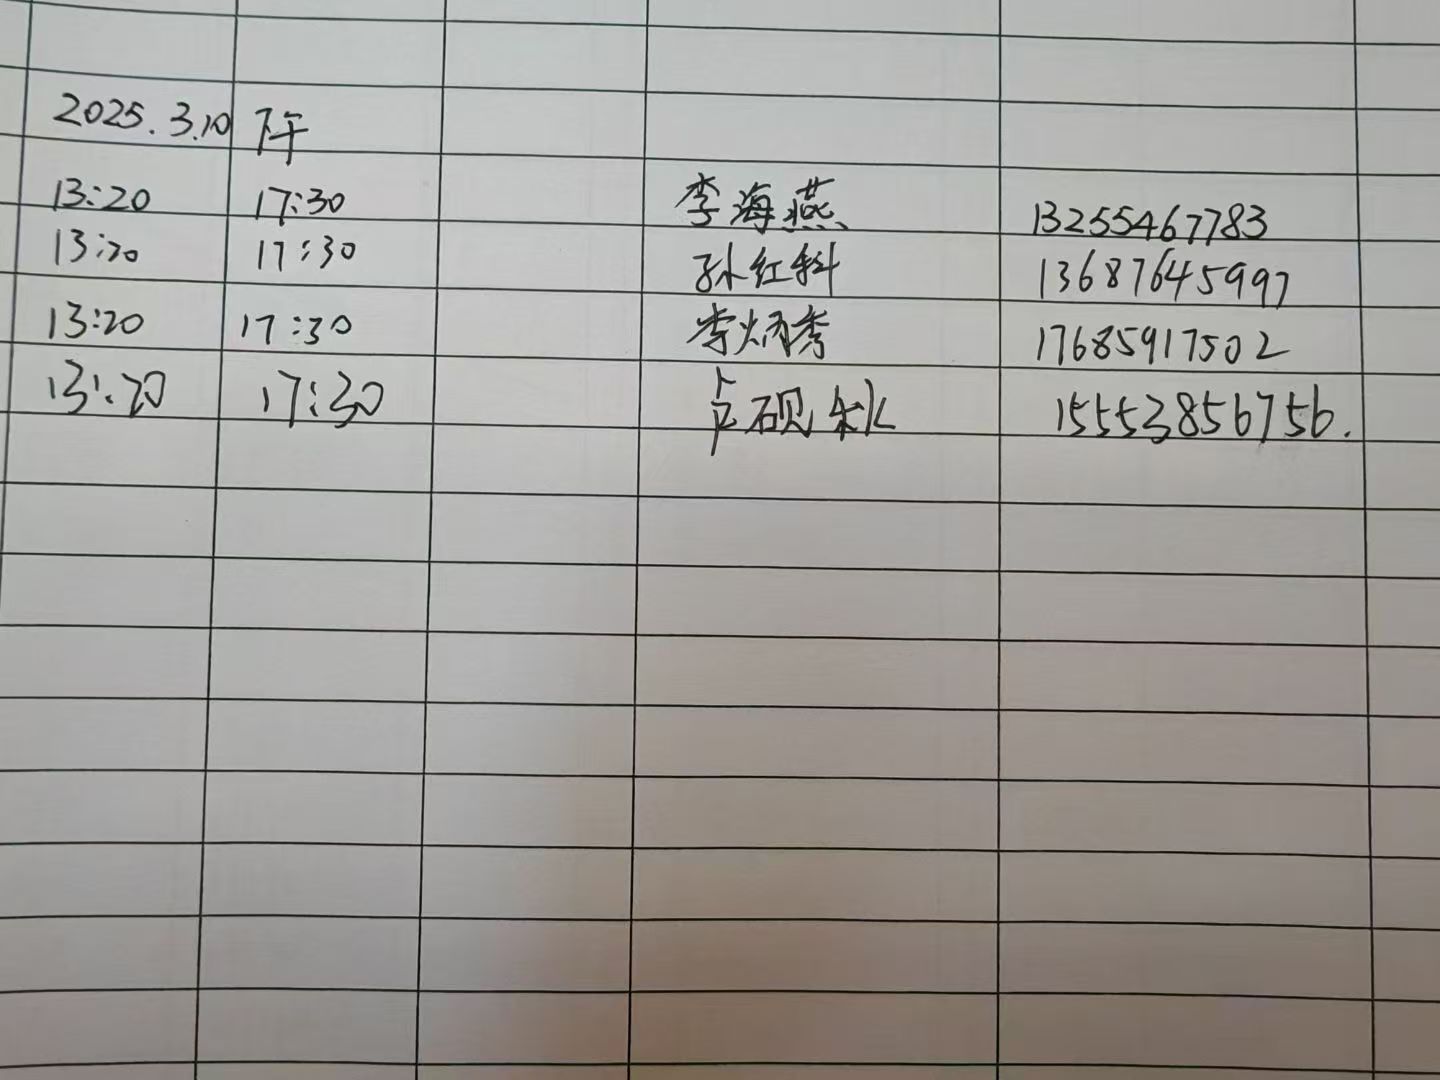 2025.3.10 下午
13:20 17:30 李海燕 13255467783
13:20 17:30 孙红科 13687645997
13:20 17:30 李炳秀 17685917502
13:20 17:30 卢砚秋 15553856756.